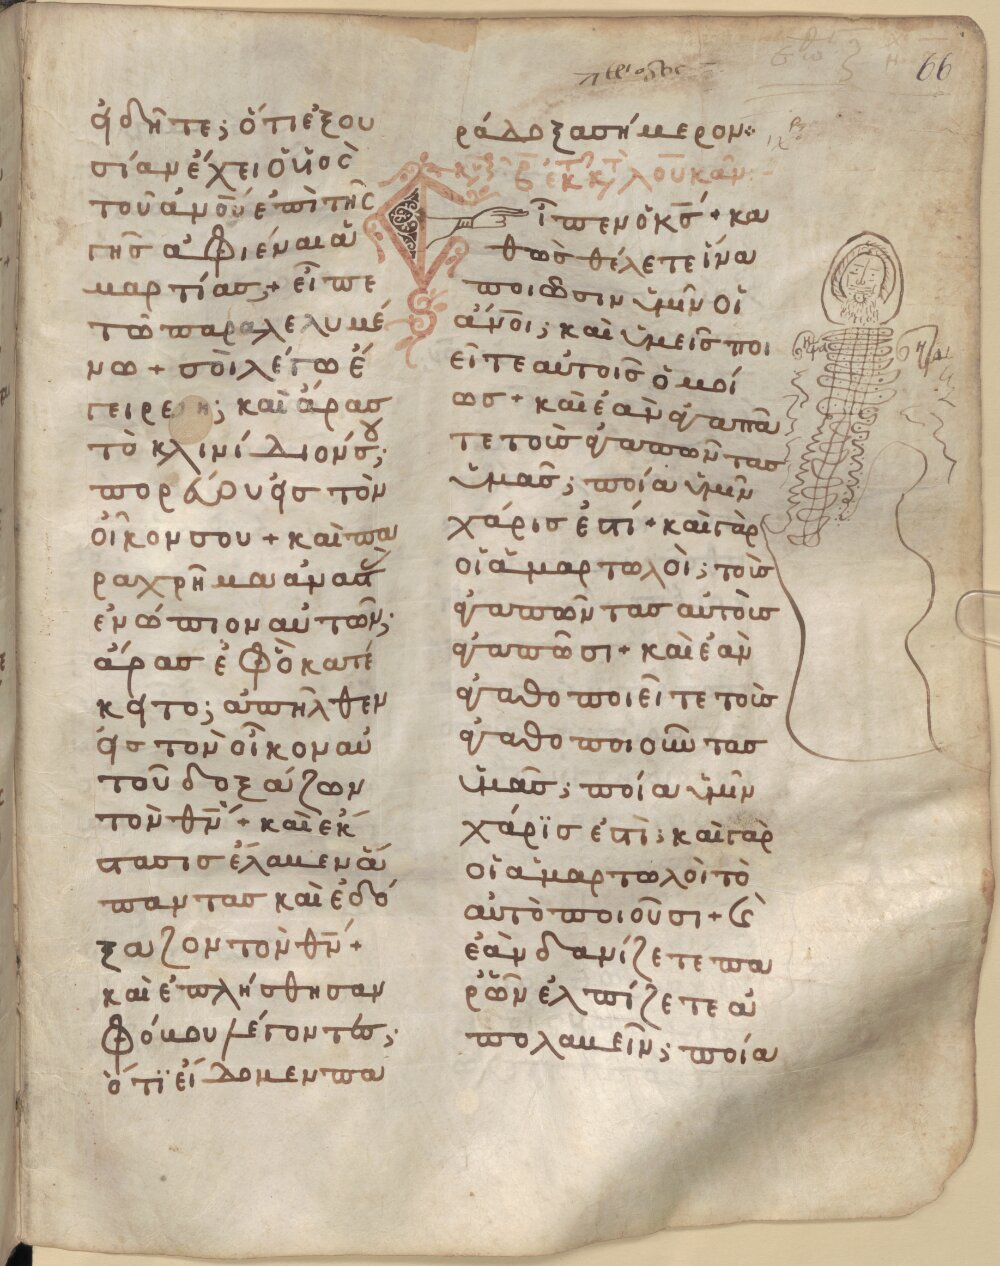 66
ἠδῆτε; ὅτι ἐξου
σίαν ἔχει ὁ υἱὸς
τοῦ ἀνοῦ ἐπὶ τῆς
γῆς ἀφιέναι ἁ
μαρτίας· + εἶπε
τῶ παραλελυμέ
νω + σοὶ λέγω ἔ
γειρε; καὶ ἄρας
τὸ κλινίδιόν σου;
πορεύου εἰς τὸν
οἶκον σου + καὶ πα
ραχρῆμα ἀναστὰς
ἐνώπιον αὐτῶν;
ἄρας ἐφ ὃ κατέ
κειτο; ἀπῆλθεν
εἰς τὸν οἶκον αὐ
τοῦ δοξάζων
τὸν θν + καὶ ἐκ
στασις ἔλαβεν ἅ
παντας καὶ ἐδό
ξαζον τὸν θν +
καὶ ἐπλήσθησαν
φόβου λέγοντες;
ὅτι εἴδομεν πα
ράδοξα σήμερον
ἐκ τοῦ κατὰ λουκᾶν
Εἶπεν ὁ κς + κα
θὼς θέλετε ἵνα
ποιῶσιν ὑμῖν οἱ
ἄνοι; καὶ ὑμεῖς ποι
εῖτε αὐτοῖς ὁμοί
ως + καὶ ἐὰν ἀγαπᾶ
τε τοὺς ἀγαπῶντας
ὑμᾶς; ποία ὑμῖν
χάρις ἐστί + καὶ γὰρ
οἱ ἁμαρτωλοὶ; τοὺς
ἀγαπῶντας αὐτοὺς
ἀγαπῶσι + καὶ ἐὰν
ἀγαθοποιεῖτε τοὺς
ἀγαθοποιοῦντας
ὑμᾶς; ποία ὑμῖν
χάρϊς ἐστὶ; καὶ γὰρ
οἱ ἁμαρτωλοὶ τὸ
αὐτὸ ποιοῦσι + καὶ
ἐὰν δανίζετε πα
ρ ὧν ἐλπίζετε ἀ
πολαβεῖν; ποία